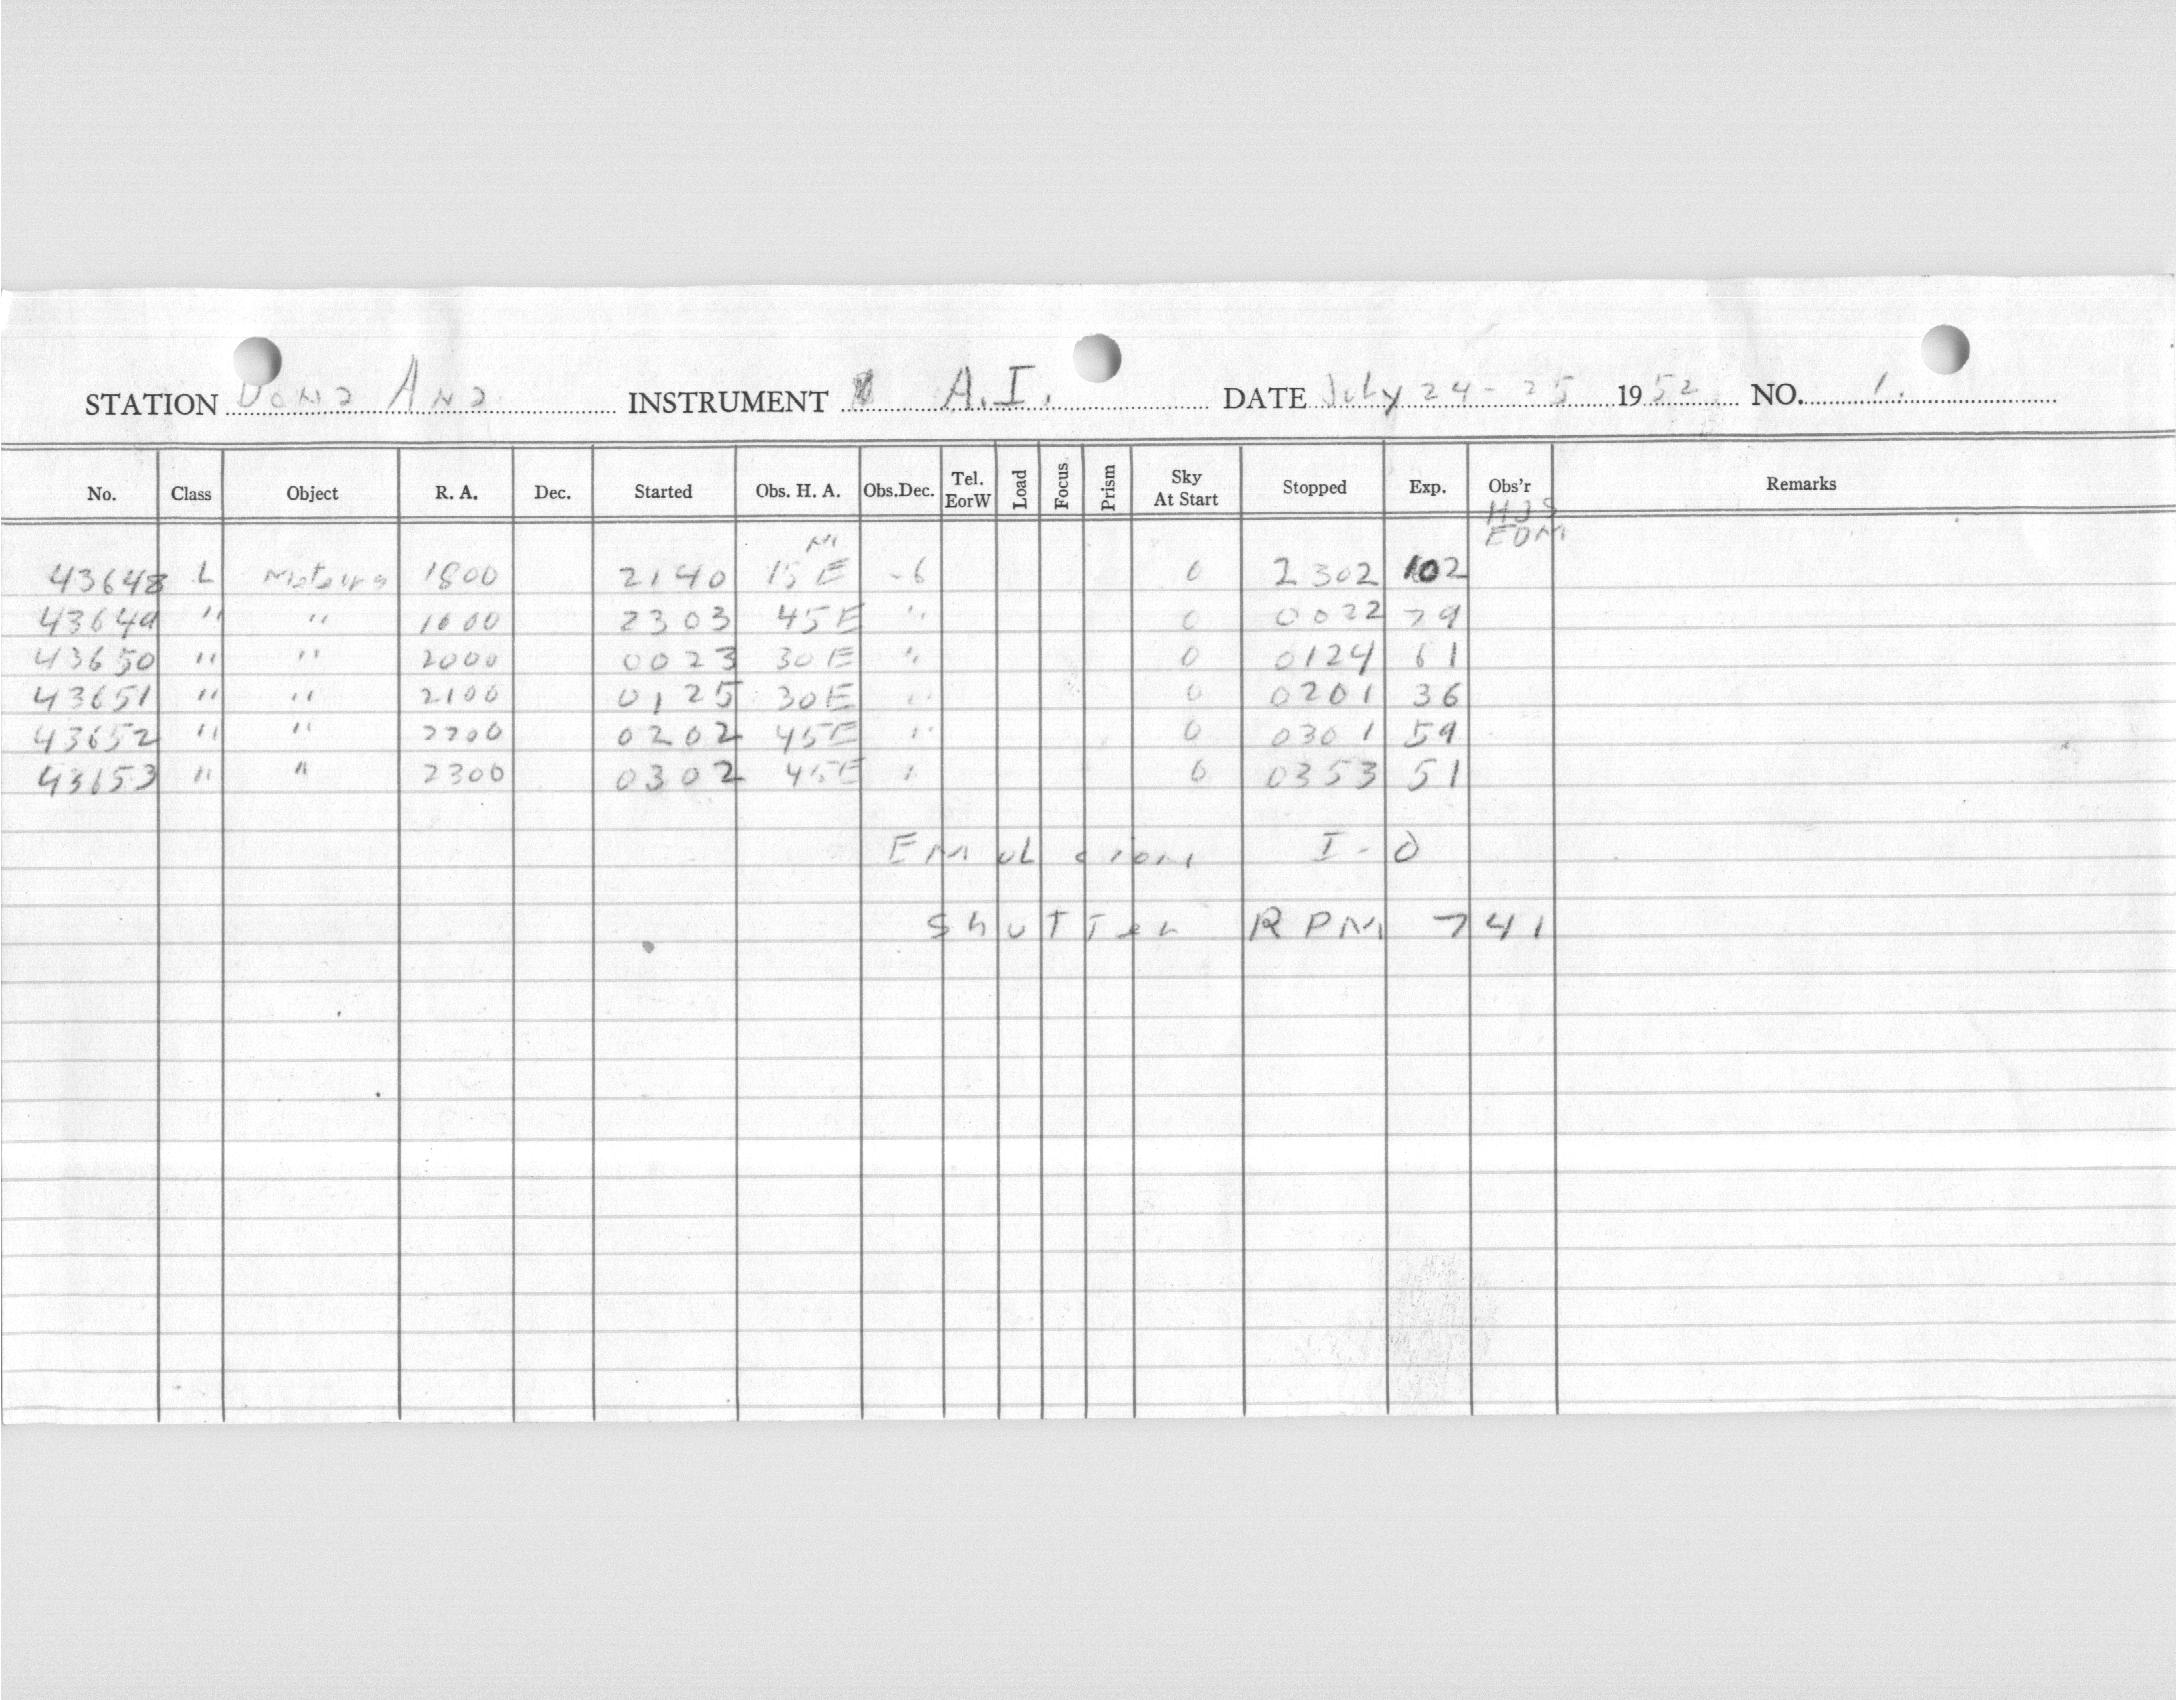 STATION Dona Ana INSTRUMENT A.I. DATE July 24-25 1952 NO. 1.
No. Class Object R. A. Dec. Started Obs. H. A. Obs.Dec. Tel. EorW Load Focus Prism Sky At Start Stopped Exp. Obs'r Remarks
HJS
EDM
M
43648 L Meteors 1800 2140 15 E -6 0 2302 102
43649 " " 2303 45E " 0 0022 79
43650 " " 2000 0023 30 E " 0 0124 61
43651 " " 2100 0125 30E " 0 0201 36
43652 " " 2200 0202 45E " 0 0301 59
43653 " " 2300 0302 45E " 0 0353 51
Emulsion I-0
Shutter RPM 741